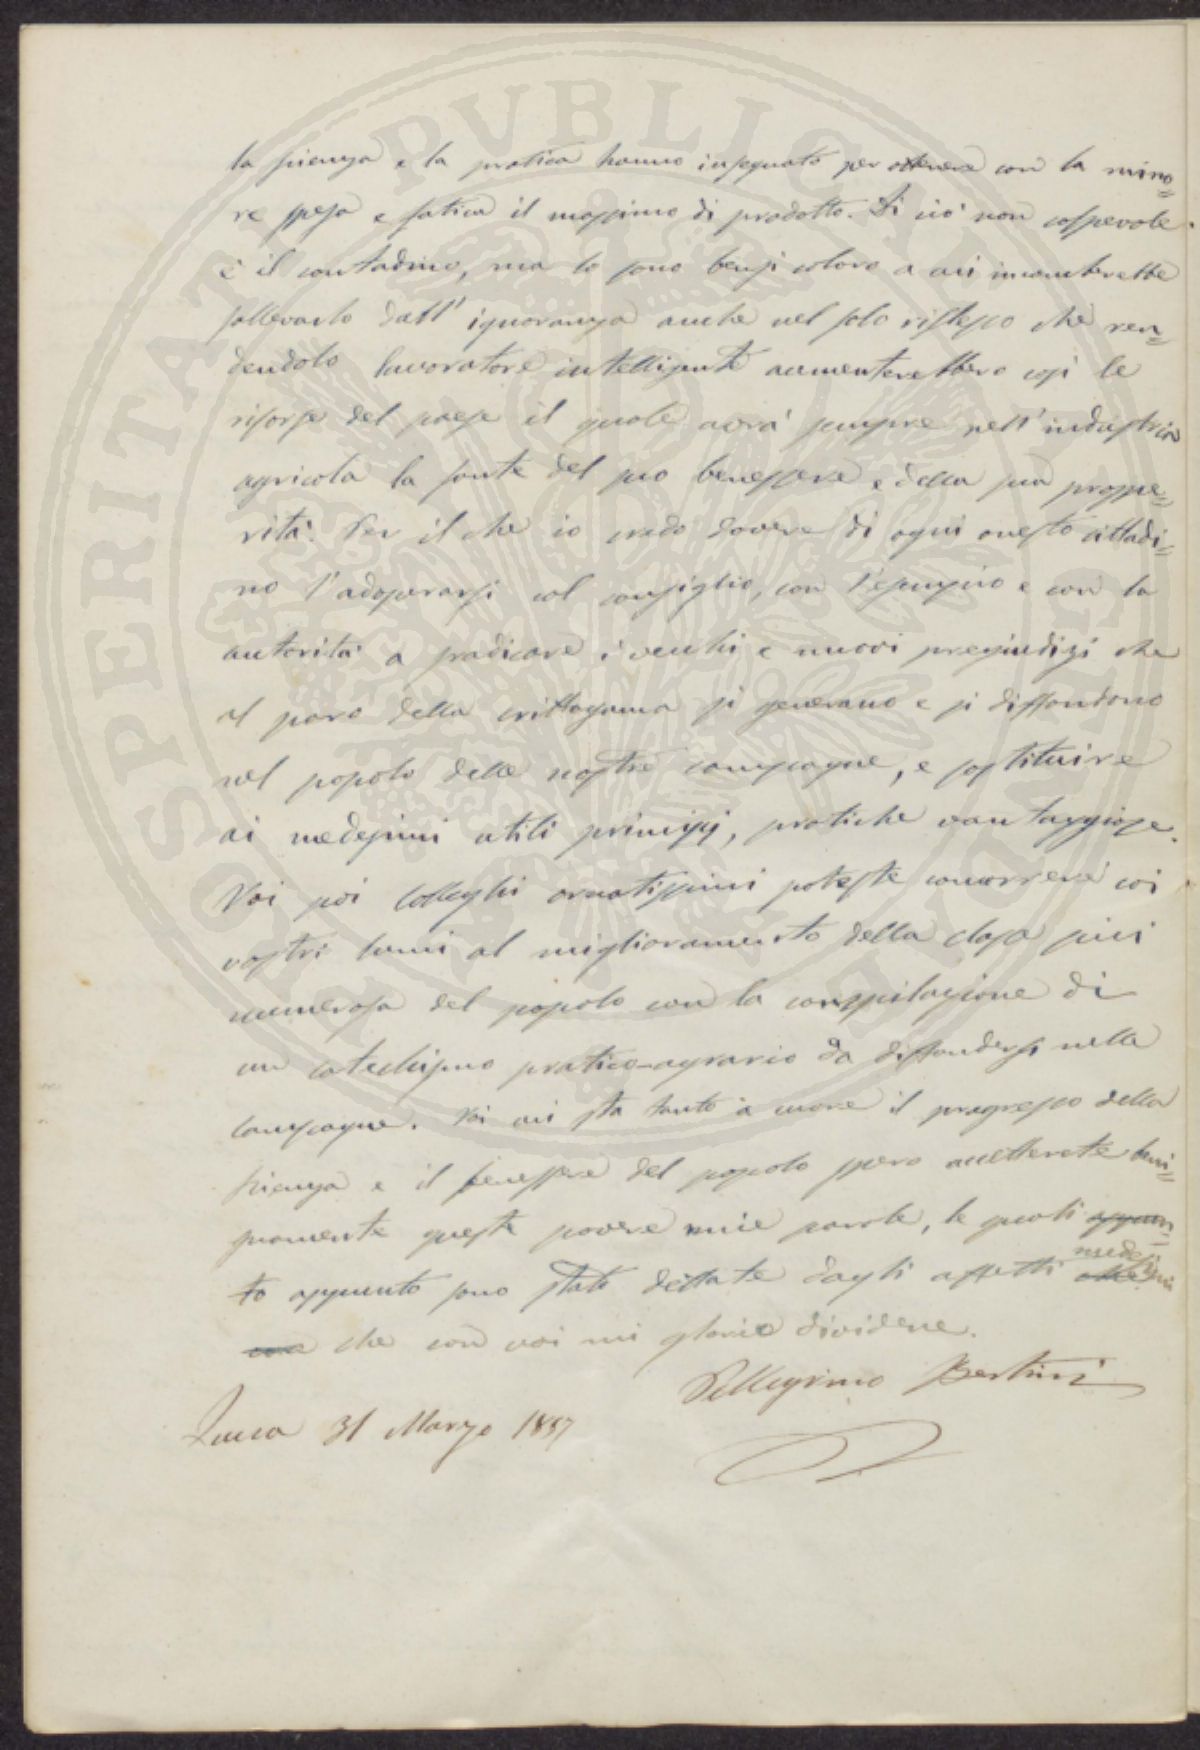 la scienza e la pratica hanno insegnato per ottenere con la mino=
re spesa e fatica il massimo di prodotto. Di ciò non colpevole
è il contadino, ma lo sono bensì coloro a cui incomberebbe
sollevarlo dall'ignoranza anche nel solo riflesso che ren=
dendolo lavoratore intelligente aumenterebbero così le
risorse del paese il quale avrà sempre nell'industria
agricola la fonte del suo benessere e della sua prospe=
rità. Per il che io credo dovere di ogni onesto cittadi=
no l'adoperarsi col consiglio, con l'esempio e con la
autorità a sradicare i vecchi e nuovi pregiudizi che
al paro della crittogama si generano e si diffondono
nel popolo delle nostre campagne, e sostituire
ai medesimi utili principj, pratiche vantaggiose.
Voi poi Colleghi ornatissimi poteste concorrere coi
vostri lumi al miglioramento della classe più
numerosa del popolo con la compilazione di
un catechismo pratico-agrario da diffondersi nelle
campagne. Voi cui sta tanto a cuore il progresso della
scienza e il benessere del popolo spero accetterete beni=
gnamente queste povere mie parole, le quali appun=
to appunto sono state dettate dagli affetti medesimi
che con voi mi glorio dividere.
Pellegrino Bertini
Lucca 31 Marzo 1857
PROSPERITATI PVBLICAE AVGENDAE